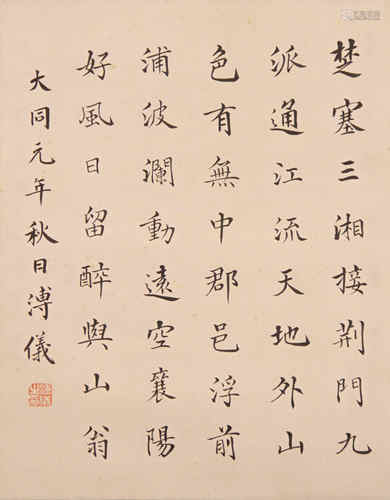 楚塞三湘接荆門九
派通江流天地外山
色有無中郡邑浮前
浦波瀾動遠空襄陽
好風日留醉與山翁
大同元年秋日溥儀